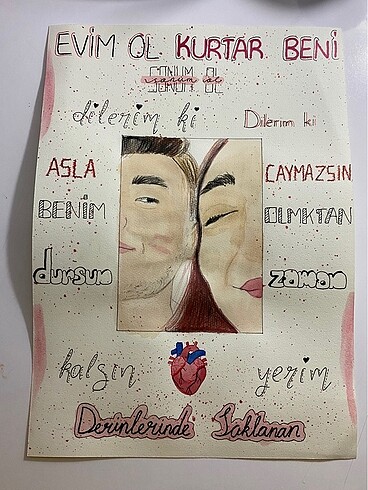 EVİM OL KURTAR BENİ
SONUM OL
dilerim ki Dilerim ki
ASLA CAYMAZSIN
BENİM OLMKTAN
dursun zaman
kalsın yerim
Derinlerinde Saklanan